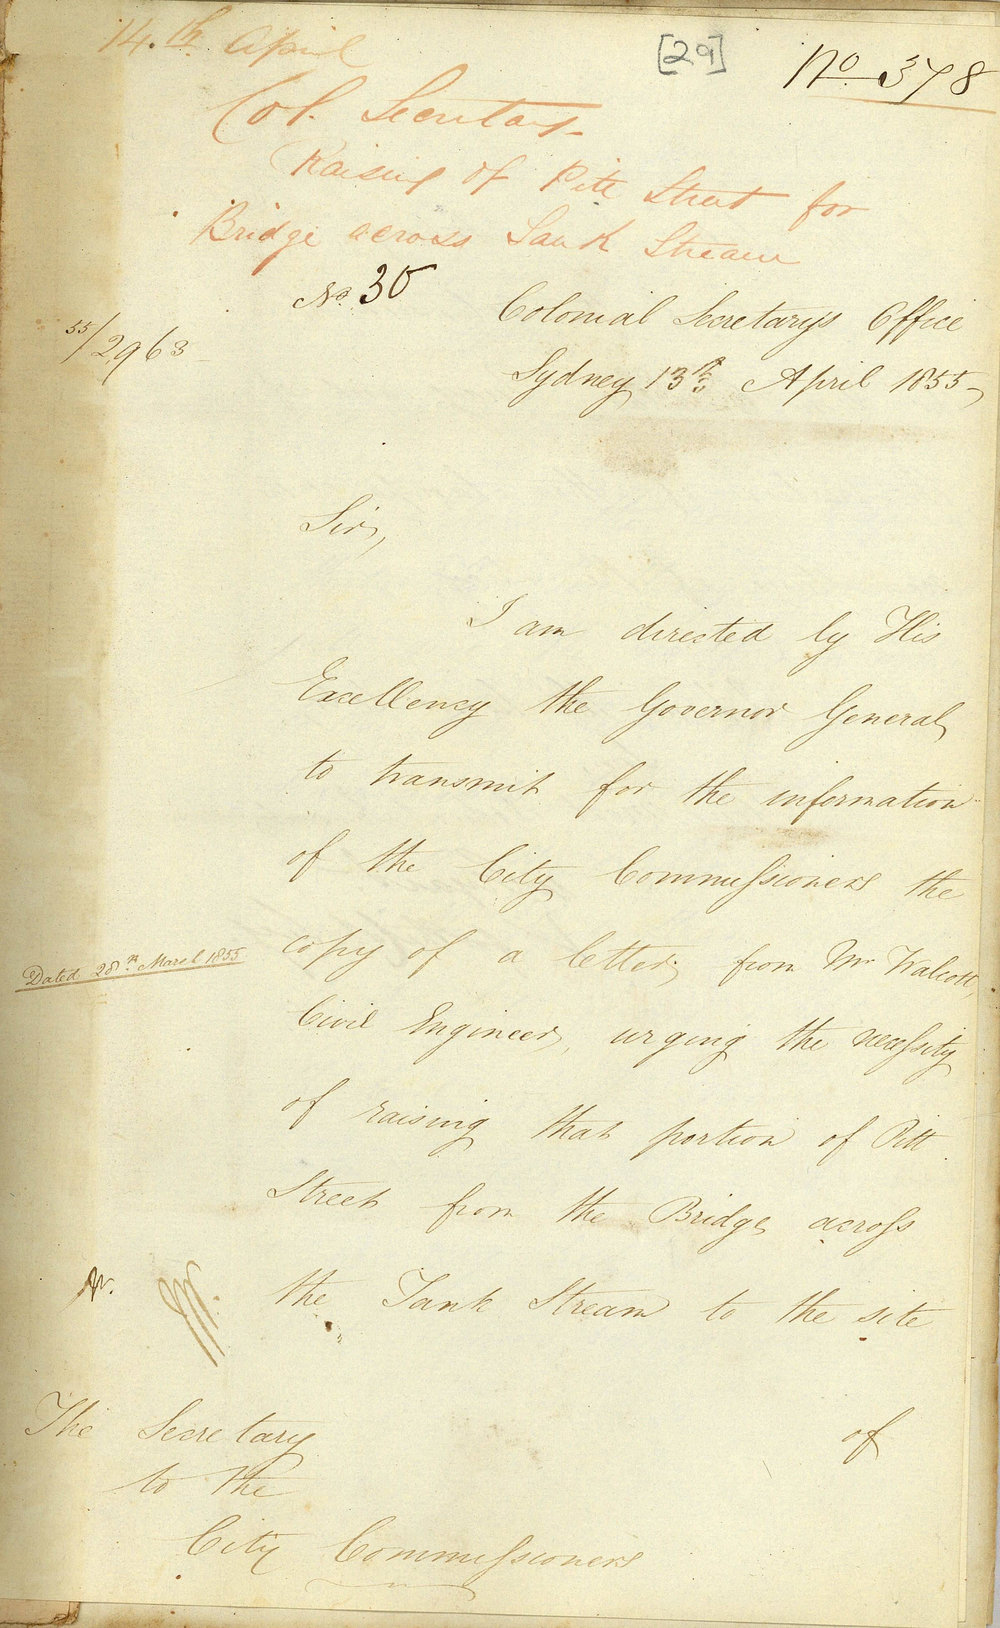 14.th April
[29]
No 378
Col. Secretary
Raising of Pitt Street for
Bridge across Tank Stream
No. 35
55/2963
Colonial Secretary's Office
Sydney 13th April 1855
Sir,
I am directed by His
Excellency the Governor General,
to transmit for the information
of the City Commissioners the
Dated 28th March 1855
copy of a letter, from Mr Walcott,
Civil Engineer, urging the necessity
of raising that portion of Pitt
Street from the Bridge across
the Tank Stream to the site
of
The Secretary
to the
City Commissioners